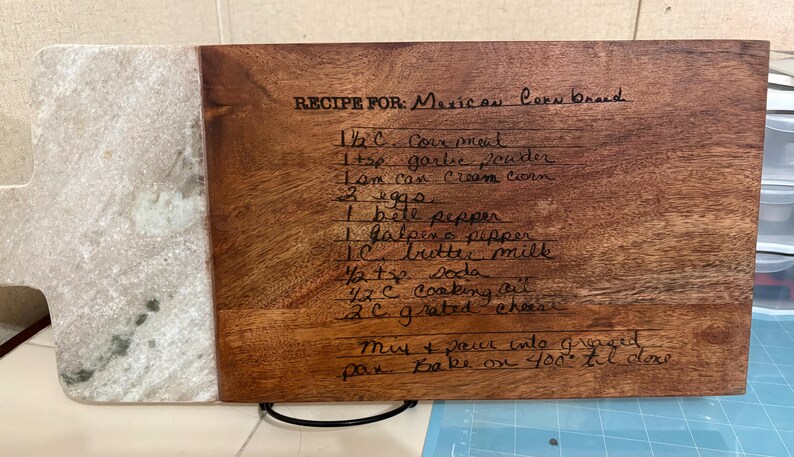 RECIPE FOR: Mexican Corn bread
1 1/2 C. corn meal
1 tsp. garlic powder
1 sm can cream corn
2 eggs
1 bell pepper
1 Jalpeno pepper
1 C. butter milk
1/2 tsp. soda
1/2 C cooking oil
2 C grated cheese
Mix & pour into greased
pan. Bake on 400° til done